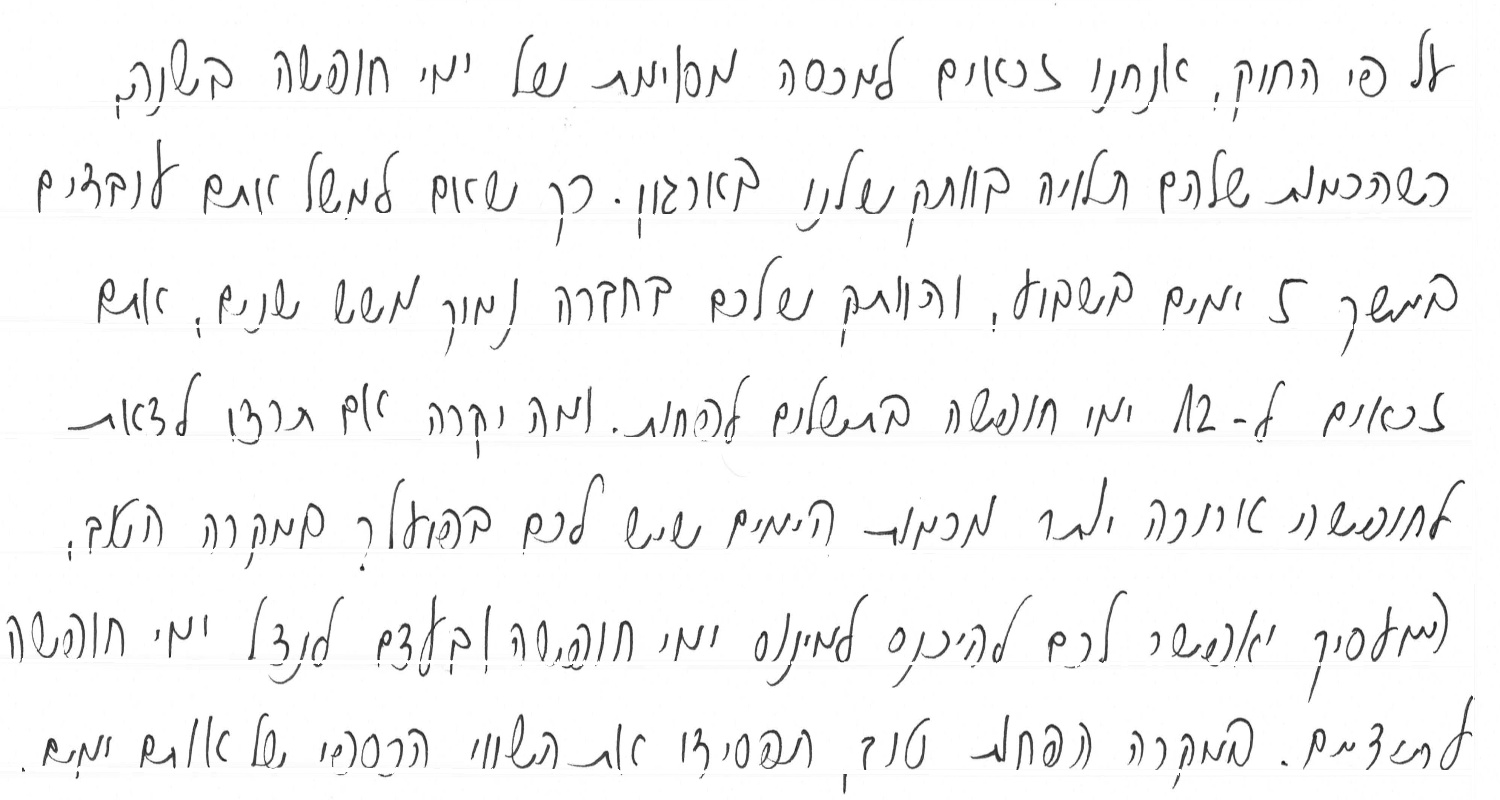 על פי החוק, אנחנו זכאים למכסה מסוימת של ימי חופשה בשנה,
כשהכמות שלהם תלויה בוותק שלנו בארגון. כך שאם למשל אתם עובדים
במשך 5 ימים בשבוע, והוותק שלכם בחברה נמוך משש שנים, אתם
זכאים ל-12 ימי חופשה בתשלום לפחות. ומה יקרה אם תרצו לצאת
לחופשה ארוכה יותר מכמות הימים שיש לכם בפועל? במקרה הטוב,
המעסיק יאפשר לכם להיכנס למינוס ימי חופשה ובעצם לנצל ימי חופשה
עתידיים. במקרה הפחות טוב, תפסידו את השווי הכספי של אותם ימים.